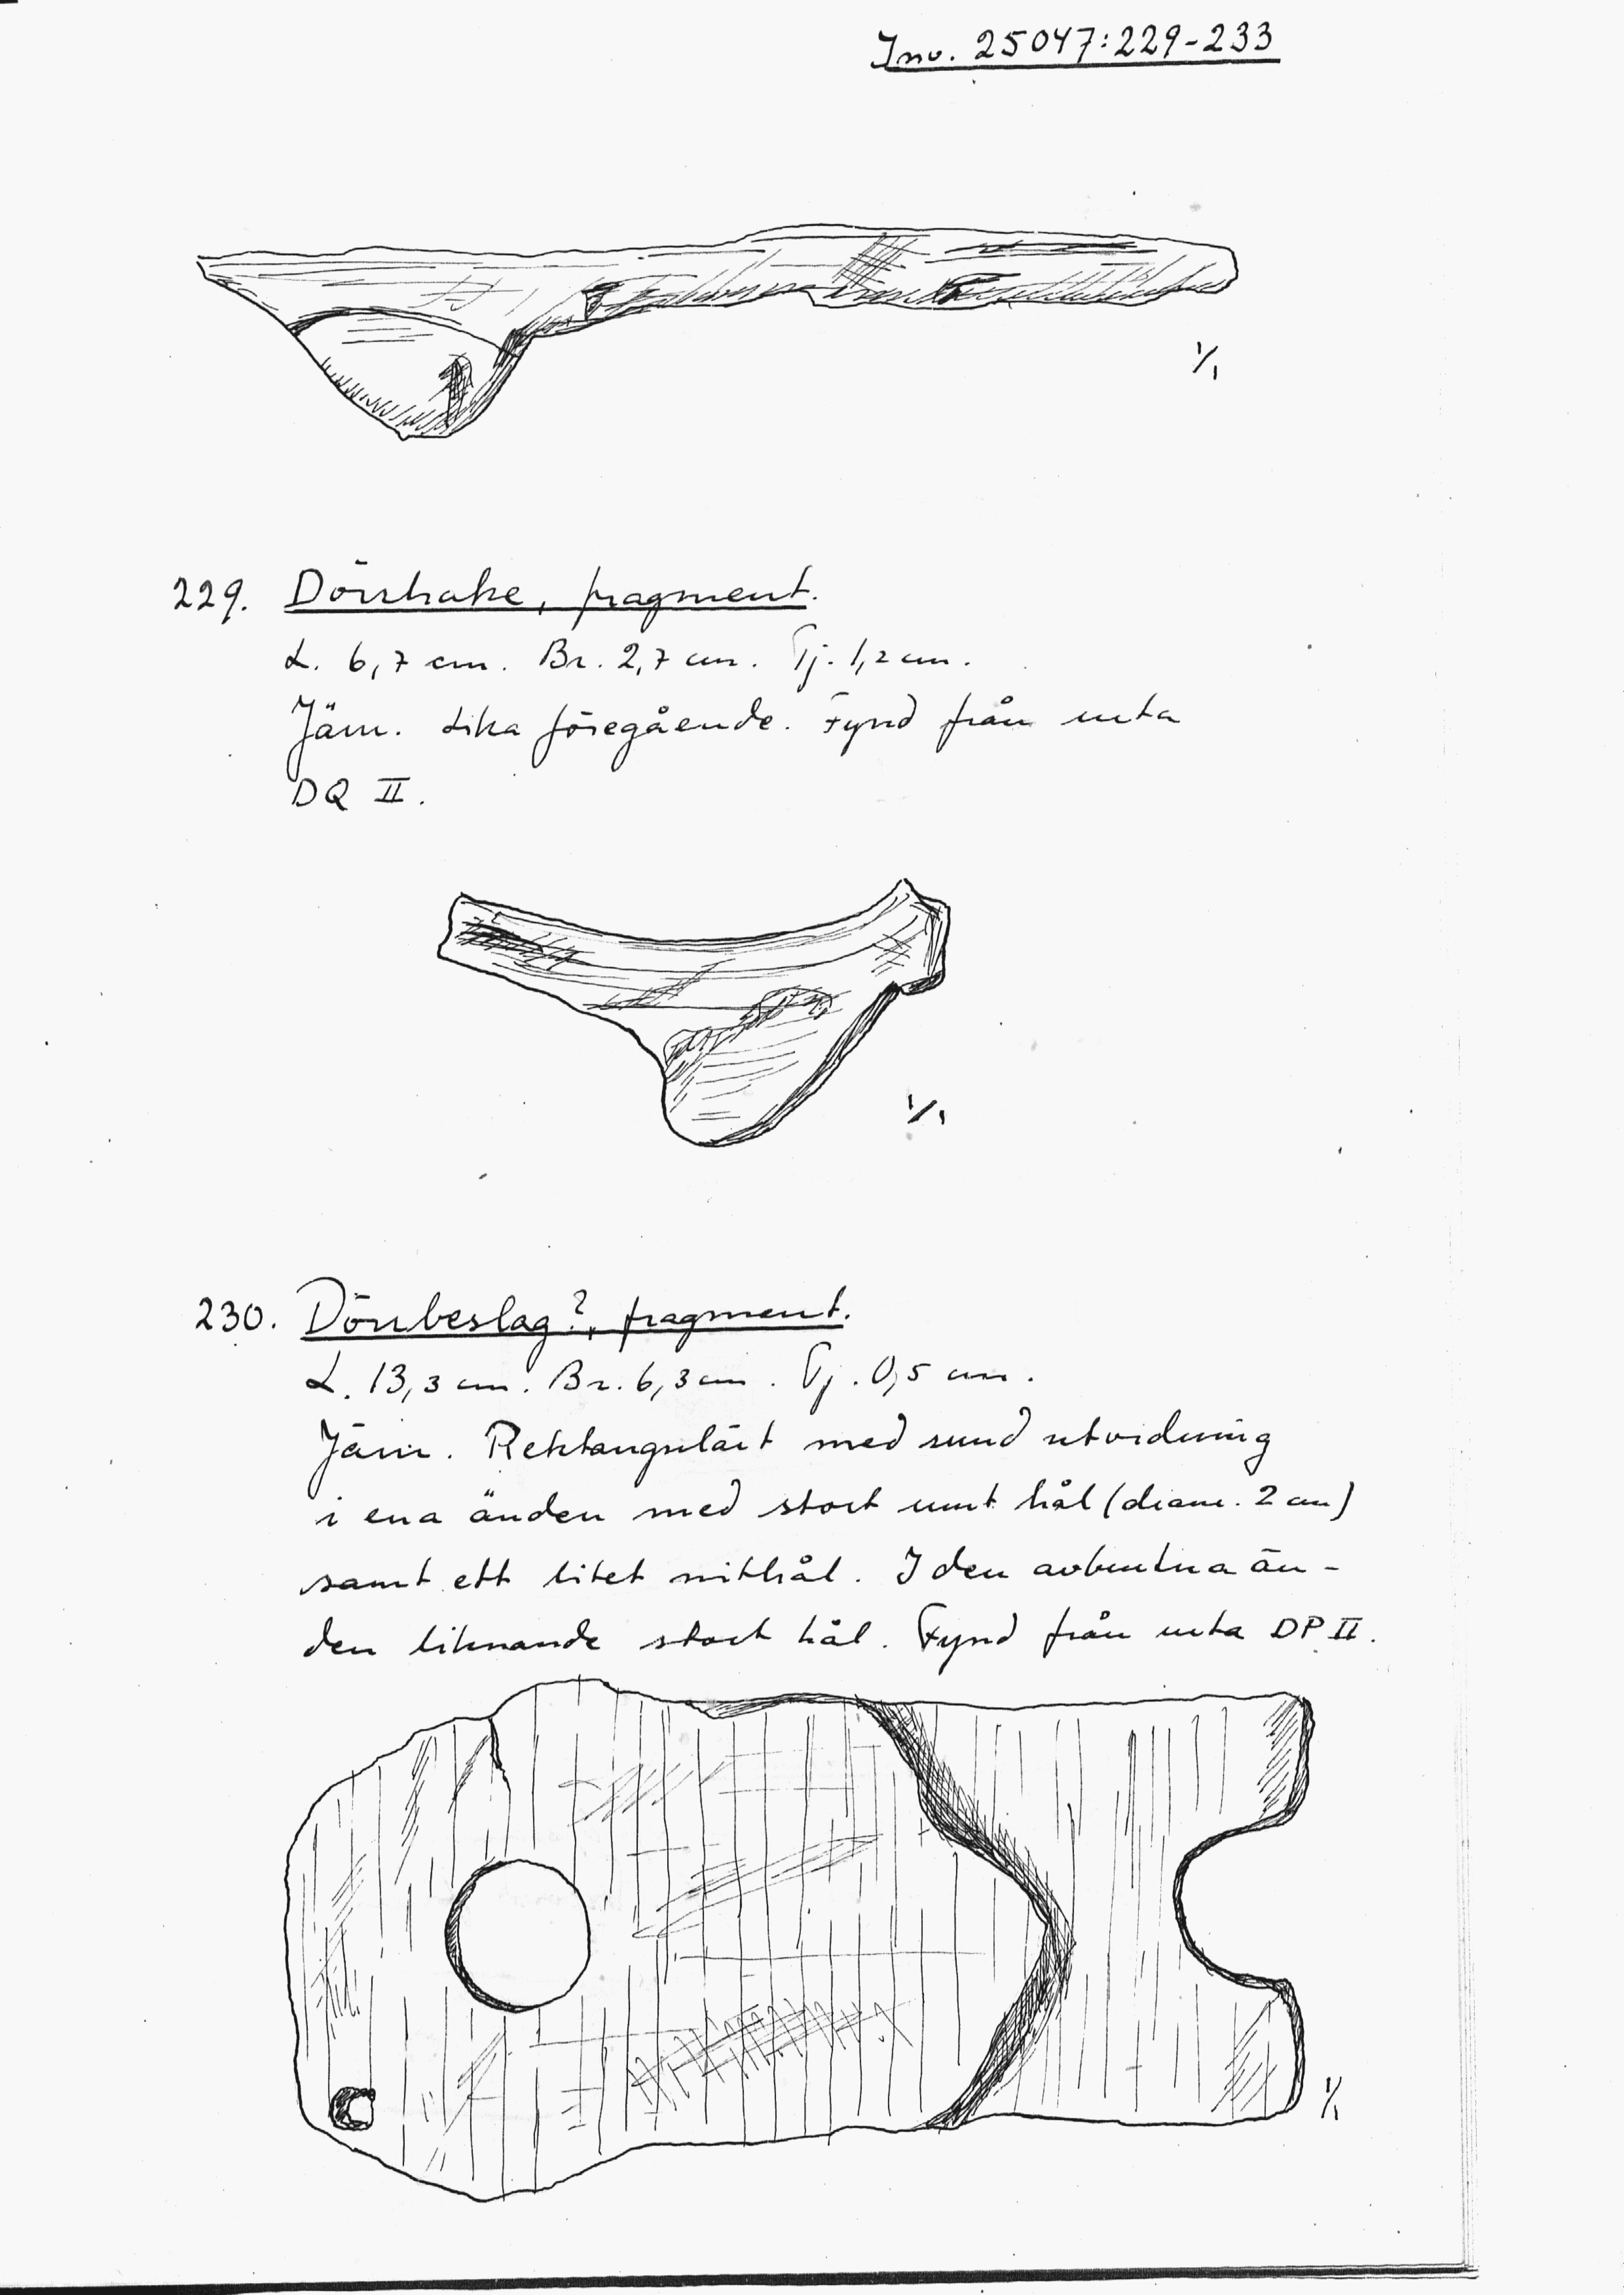 Inv. 25047:229-233
1/1
229. Dörrhake, fragment.
L. 6,7 cm. Br. 2,7 cm. Tj. 1,2 cm.
Järn. Lika föregående. Fynd från ruta
DQ II.
1/1
230. Dörrbeslag?, fragment.
L. 13,3 cm. Br. 6,3 cm. Tj. 0,5 cm.
Järn. Rektangulärt med rund utvidning
i ena änden med stort runt hål (diam. 2 cm)
samt ett litet nithål. I den avbrutna än-
den liknande stort hål. Fynd från ruta DP II.
1/1